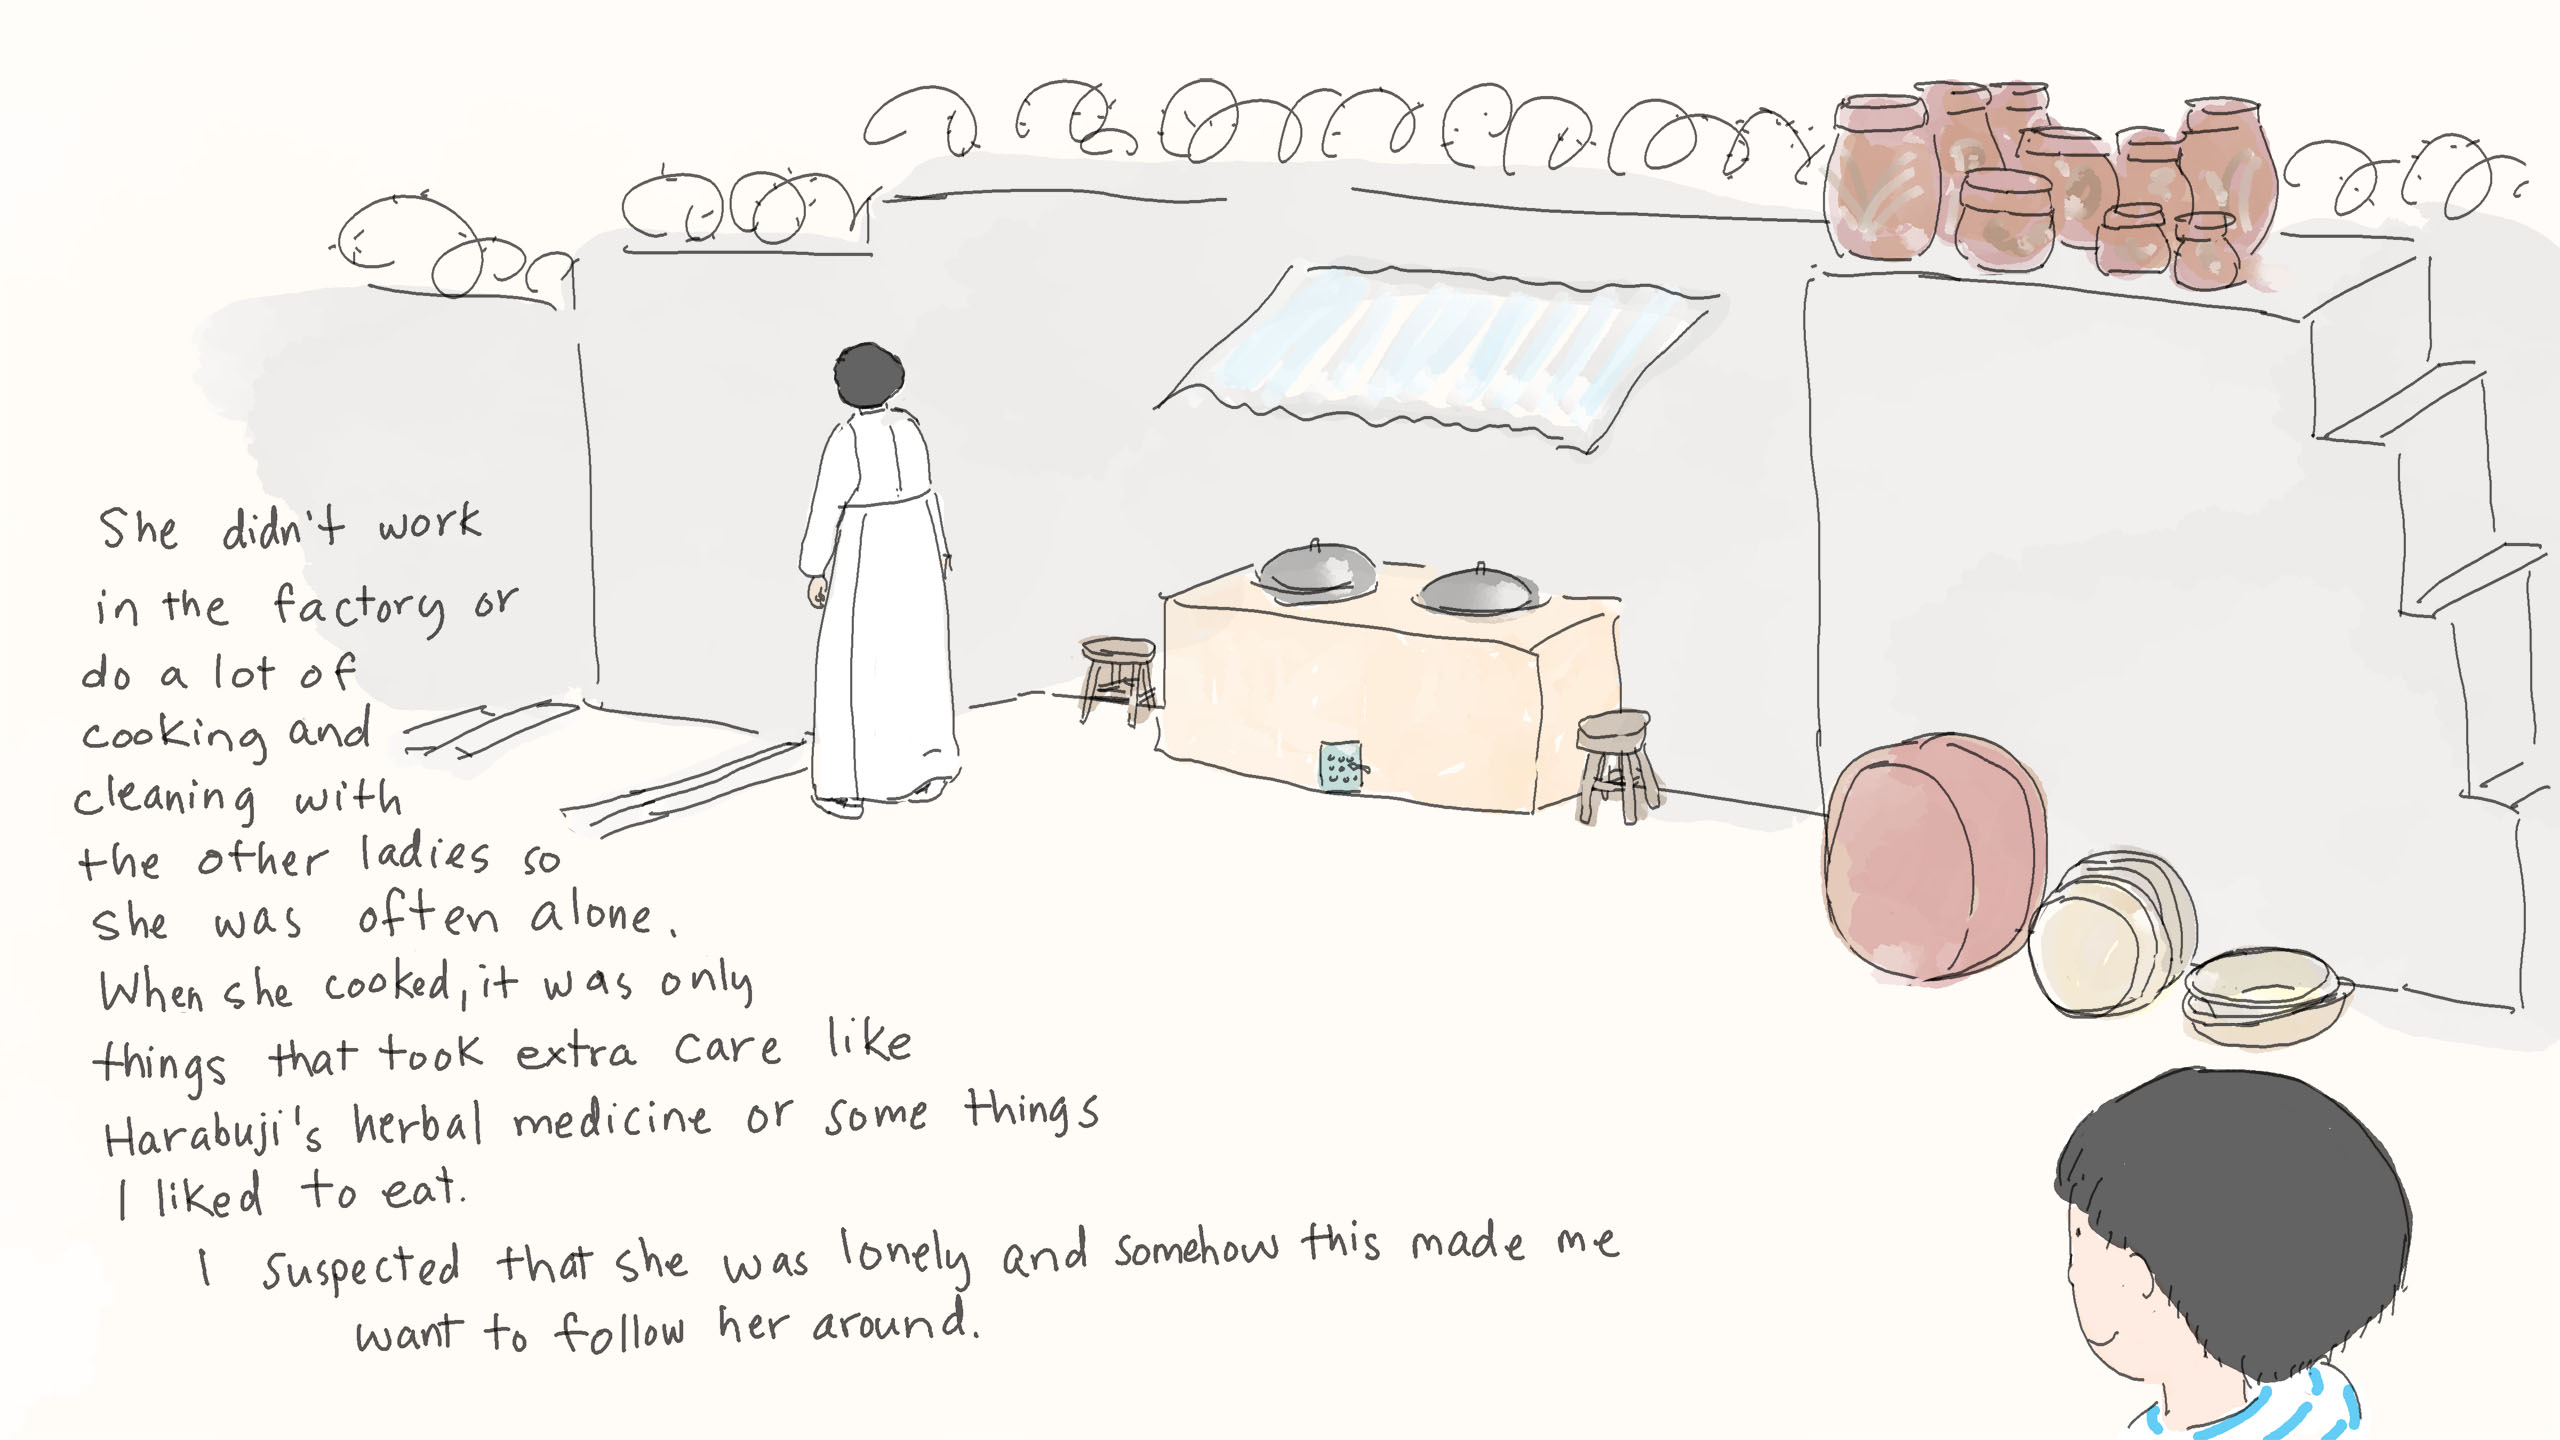 She didn't work
in the factory or
do a lot of
cooking and
cleaning with
the other ladies so
she was often alone.
When she cooked, it was only
things that took extra care like
Harabuji's herbal medicine or some things
I liked to eat.
I suspected that she was lonely and somehow this made me
want to follow her around.